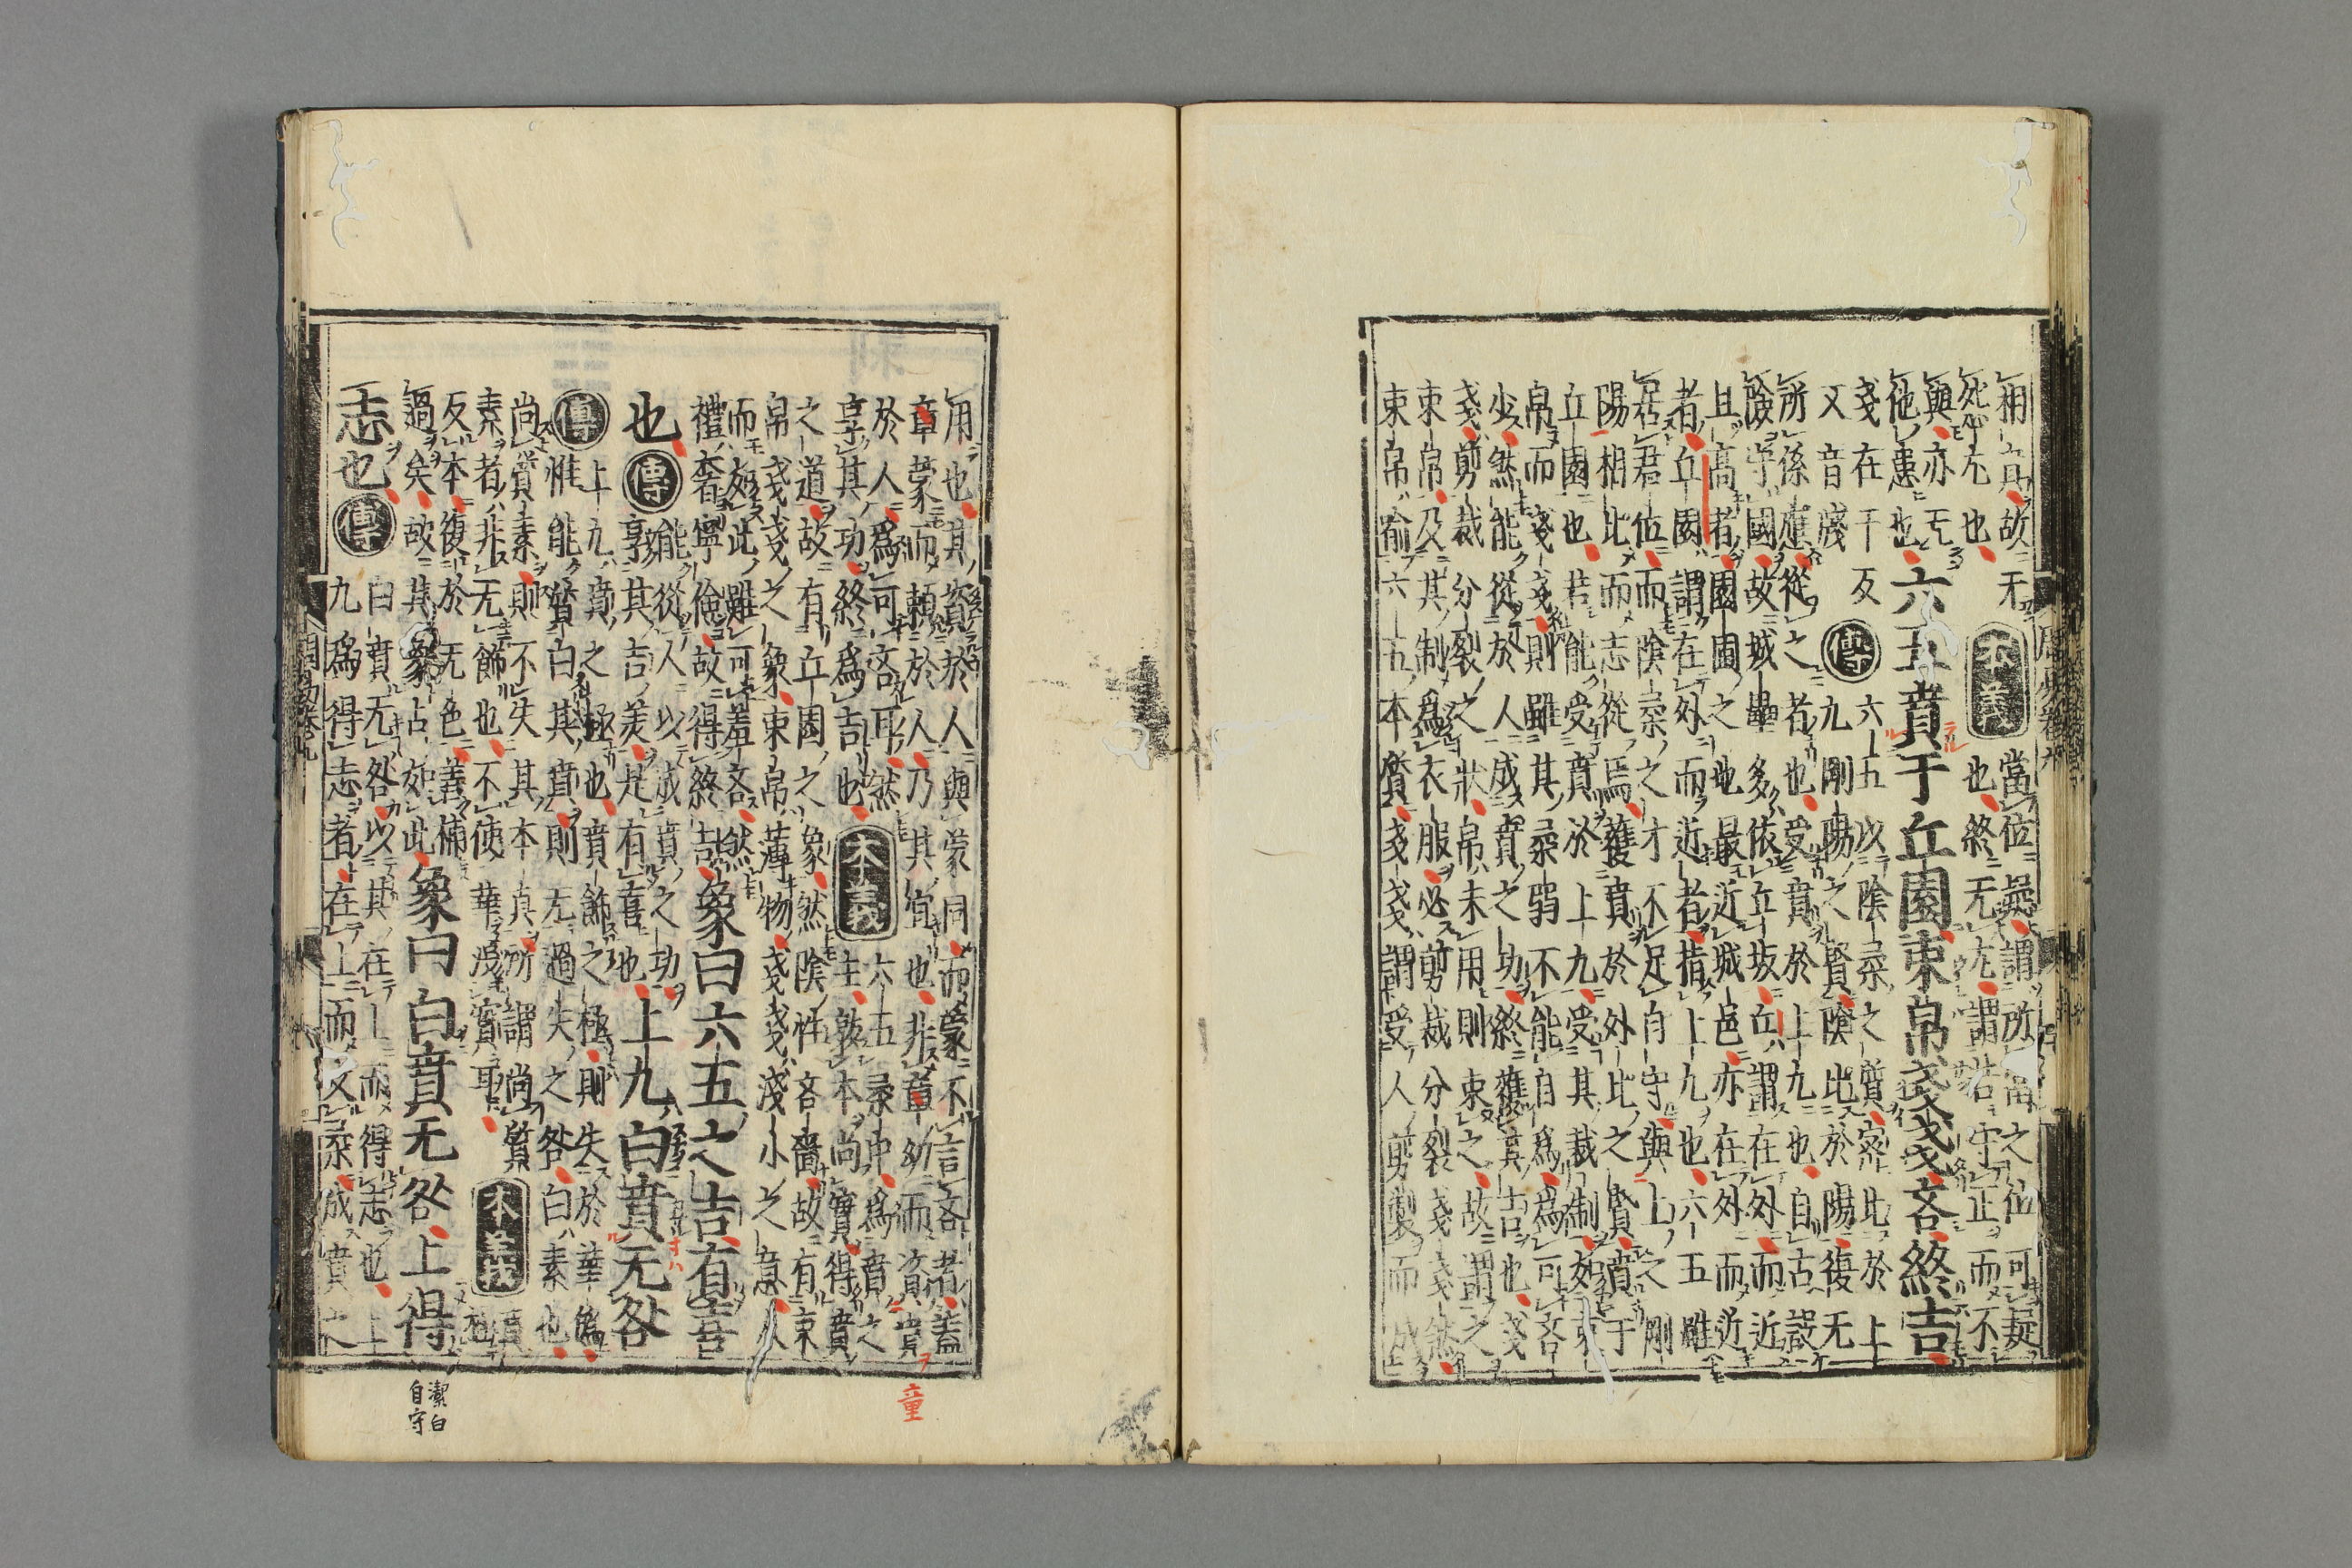 相賁故无
終尤也
本義
當位疑謂所當之位可疑
也終无尤謂若守正而不
與亦无
他患也
六五賁于丘園束帛戔戔吝終吉
戔在千反
又音牋
傳
六五以陰柔之質密比於上
九剛陽之賢陰比於陽復无
所係應從之者也受賁於上九也自古設
險守國故城壘多依丘坂丘謂在外而近
且高者園圃之地最近城邑亦在外而近
者丘園謂在外而近者指上九也六五雖
居君位而陰柔之才不足自守與上之剛
陽相比而志從焉獲賁於外比之賢賁于
丘園也若能受賁於上九受其裁制如束
帛而戔戔則雖其柔弱不能自爲爲可吝
少然能從於人成賁之功終獲其吉也戔
戔剪裁分裂之狀帛未用則束之故謂之
束帛及其制爲衣服必剪裁分裂戔戔然
束帛喻六五本質戔戔謂受人剪製而成
用也其資於人與蒙同而蒙不言吝者蓋
章蒙而頼於人乃其宜也非章幼而資賁
於人爲可吝耳然
享其功終爲吉也
本義
六五柔中爲賁之
主敦本尚實得賁
之道故有丘園之象然陰性吝嗇故有束
帛戔戔之象束帛薄物戔戔淺小之意人
而如此雖可羞吝然
禮奢寧儉故得終吉
象曰六五之吉有喜
也
傳
能從人以成賁之功
享其吉美是有喜也
上九白賁无咎
傳
上九賁之極也賁飾之極則失於華僞
惟能質白其賁則无過失之咎白素也
尚質素則不失其本真所謂尚質
素者非无飾也不使華沒實耳
本義
賁
極
反本復於无色善補
過矣故其象占如此
象曰白賁无咎上得
志也
傳
白賁无咎以其在上而得志也上
九爲得志者在上而文柔成賁之
童
潔白
自守